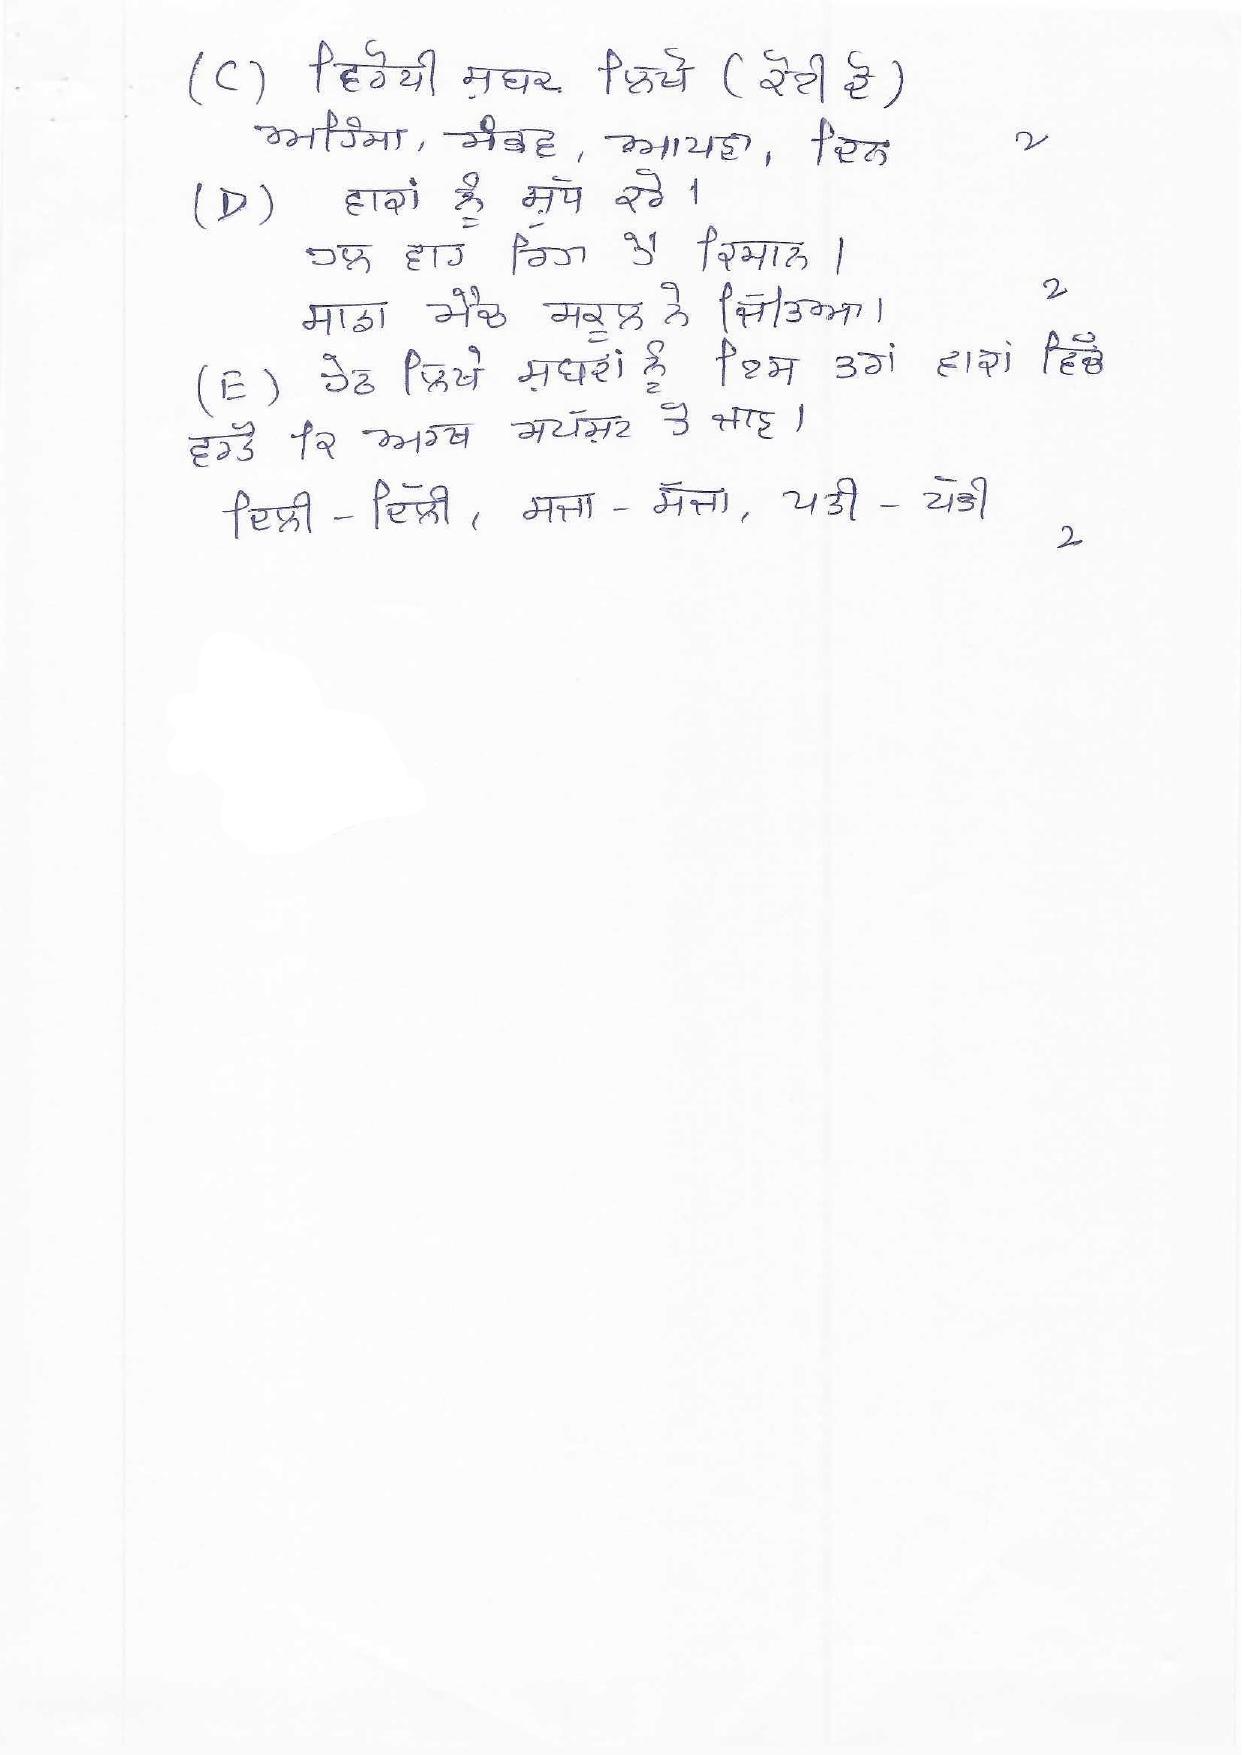 (C) ਵਿਰੋਧੀ ਸ਼ਬਦ ਲਿਖੋ (ਕੋਈ ਦੋ)
ਅਹਿੰਸਾ, ਸੰਭਵ, ਆਪਣਾ, ਦਿਨ 2
(D) ਵਾਕਾਂ ਨੂੰ ਸ਼ੁੱਧ ਕਰੋ ।
ਹਲ ਵਾਹ ਰਿਹਾ ਏ ਕਿਸਾਨ ।
ਸਾਡਾ ਮੈਚ ਸਕੂਲ ਨੇ ਜਿੱਤਿਆ । 2
(E) ਹੇਠ ਲਿਖੇ ਸ਼ਬਦਾਂ ਨੂੰ ਇਸ ਤਰਾਂ ਵਾਕਾਂ ਵਿੱਚ
ਵਰਤੋ ਕਿ ਅਰਥ ਸਪੱਸ਼ਟ ਹੋ ਜਾਣ ।
ਦਿਲੀ - ਦਿੱਲੀ, ਸਜਾ - ਸੱਜਾ, ਪਤੀ - ਪੱਤੀ
2